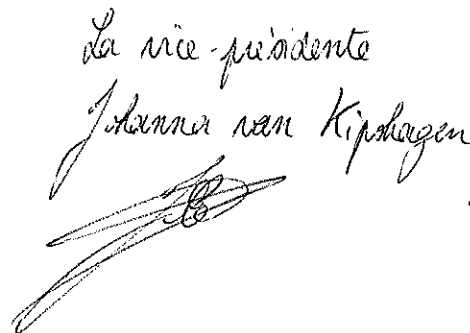 La vice-présidente
Johanna van Kipshagen